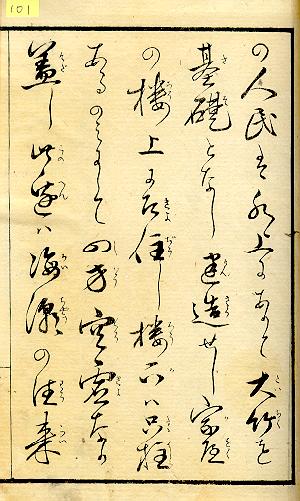 101
の人民は水上にありて大竹を
基礎となし建造せし家屋
の楼上に居住し楼下ハ只柱
あるのみにして四方空虚なり
蓋し此辺ハ海潮の往来